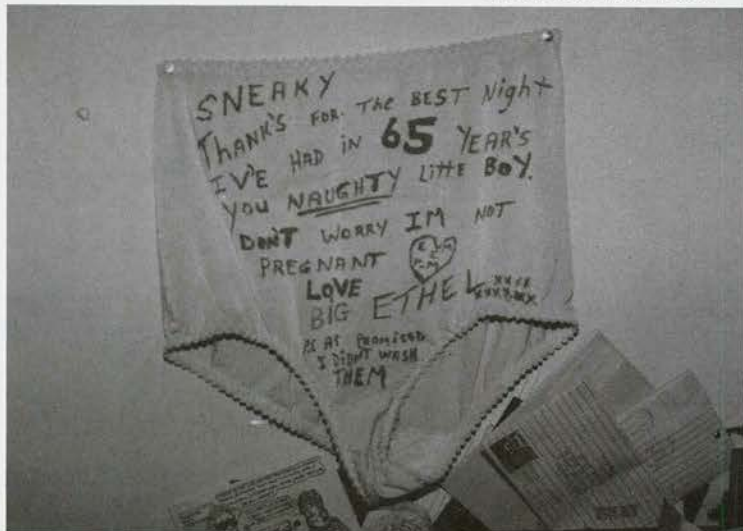 SNEAKY
THANK'S FOR. The BEST Night
IV'E HAD iN 65 YEAR'S
YOU NAUGHTY LittE BOY.
DON'T WORRY IM NOT
PREGNANT
LOVE
BIG ETHEL xxxx
xxxxxxx
PS AS PROMISED
I DIDN'T WASH
THEM